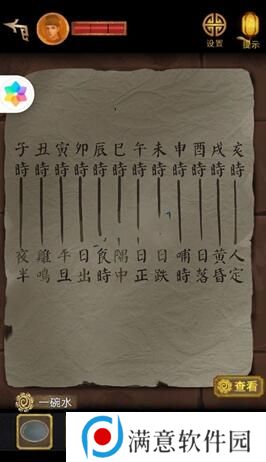 设置
提示
子丑寅卯辰巳午未申酉戌亥
時時時時時時時時時時時時
夜雞平日食隅日日哺日黃人
半鳴旦出時中正跌時落昏定
查看
一碗水
满意软件园